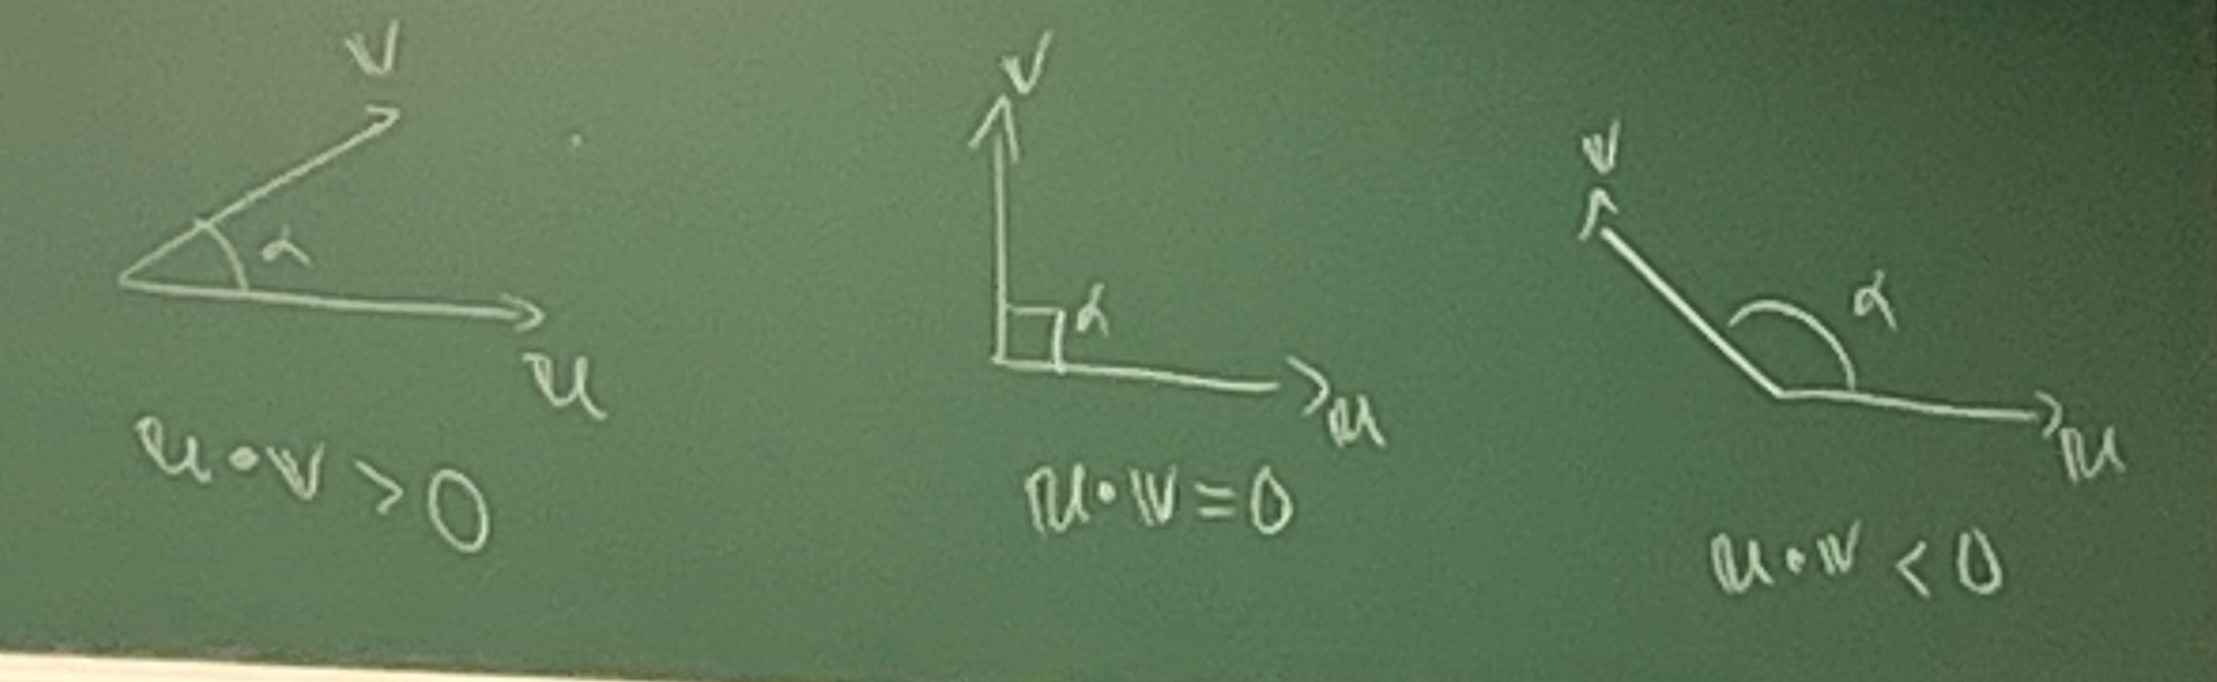 v
α
u
u•v > 0
v
α
u
u•v = 0
v
α
u
u•v < 0